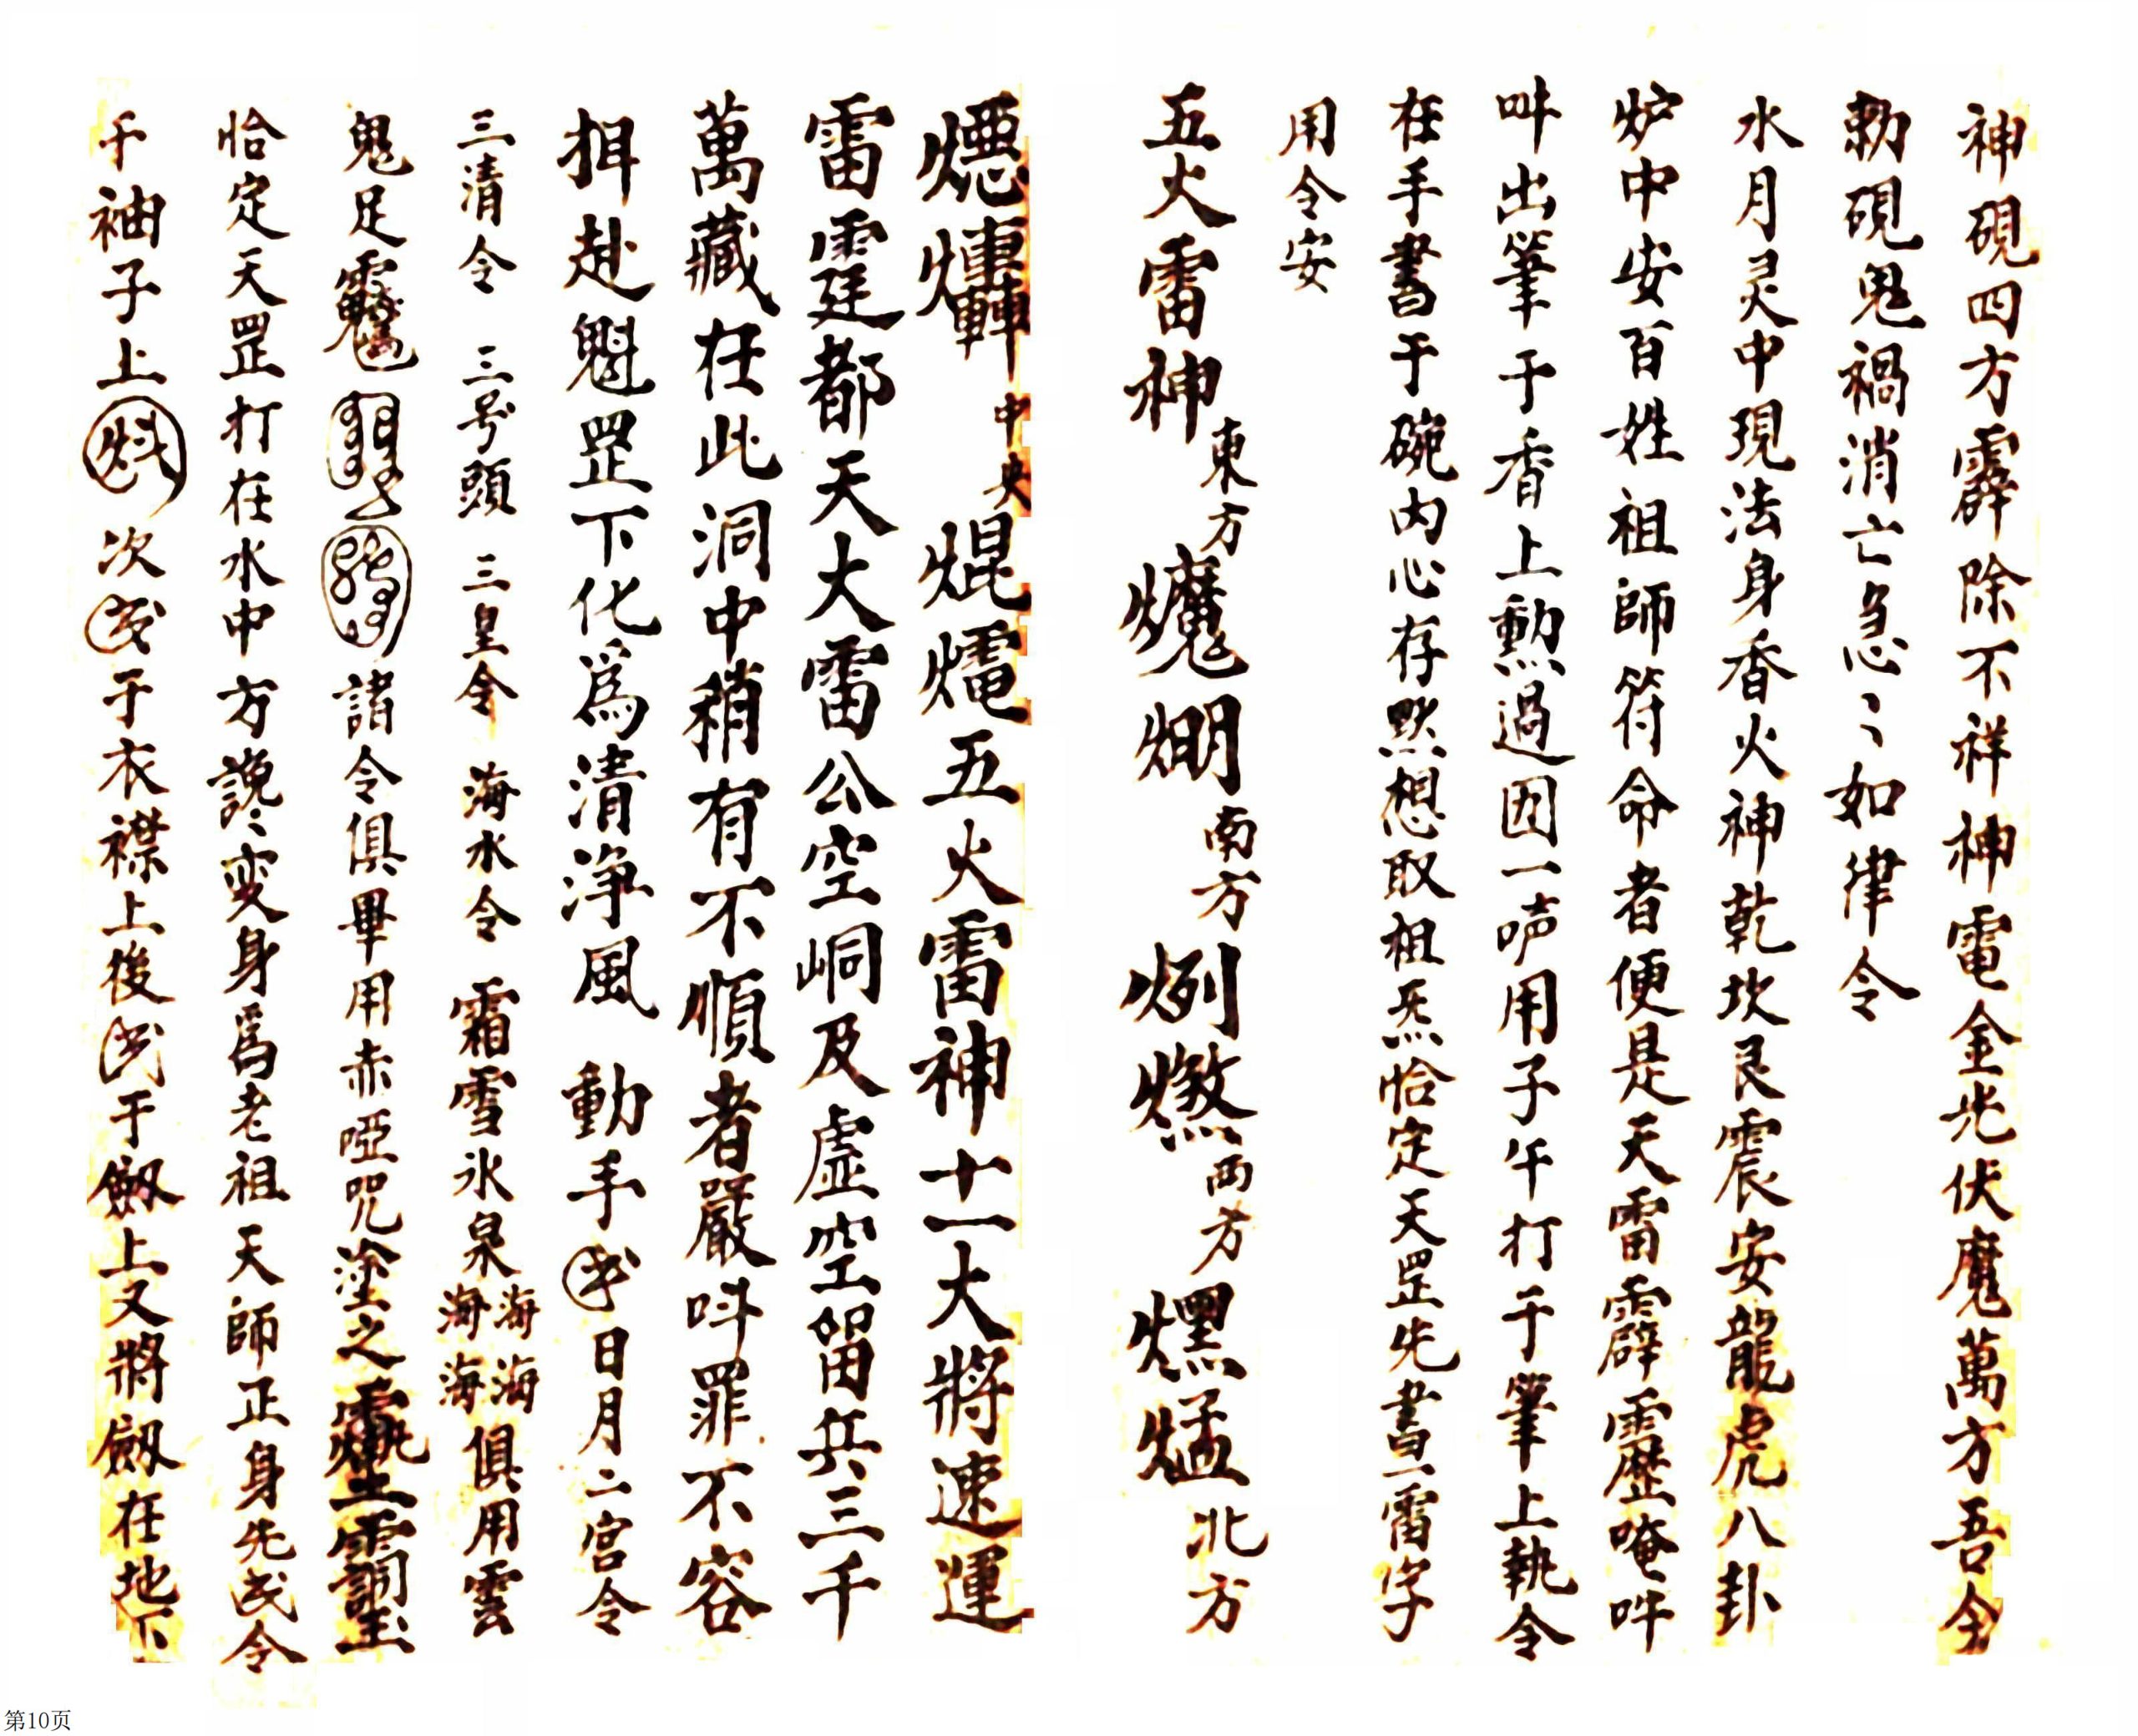 神硯四方霹除不祥神電金光伏魔萬方吾今
勅硯鬼禍消亡急〻如律令
水月灵中現法身香火神乾坎艮震安龍虎八卦
炉中安百姓祖師符命者便是天雷霹靂唵吽
叫出筆于香上勳過囙一声用子午打于筆上執令
在手書于碗内心存默想取祖炁恰定天罡先書一雷字
用令安
五火雷神東方爣㷁南方烮燉西方爅㷯北方
中央焜五火雷神十一大將速運
雷霆都天大雷公空峒及虚空留兵三千
萬藏在此洞中稍有不順者嚴呌罪不容
揖赴魁罡下化爲清净風 動手日月二宫令
三清令 三号頭 三皇令 海水令 霜雪氷泉海海海海俱用雲
鬼足諸令俱畢用赤啞咒塗之
恰定天罡打在水中方讒〻変身爲老祖天師正身先令
于袖子上次于衣襟上後于劔上又將劔在地下
第10页